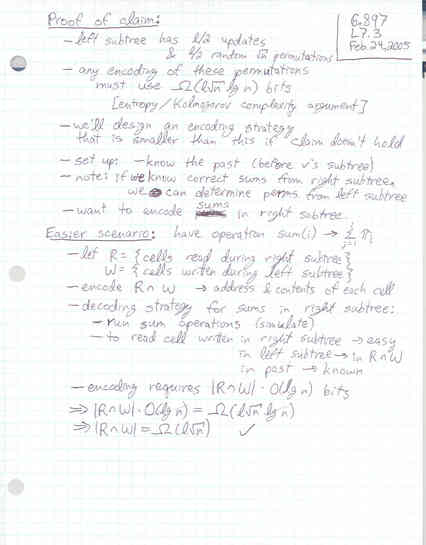 6.897
L7.3
Feb. 24, 2005
Proof of claim:
- left subtree has l/2 updates
& l/2 random √n permutations
- any encoding of these permutations
must use Ω(l√n lg n) bits
[entropy/Kolmogorov complexity argument]
- we'll design an encoding strategy
that is smaller than this if claim doesn't hold
- set up: - know the past (before v's subtree)
- note: if we know correct sums from right subtree,
we can determine perms from left subtree
- want to encode sums in right subtree
Easier scenario: have operation sum(i) → Σ_{j=1}^{i} π_j
- let R = {cells read during right subtree}
W = {cells written during left subtree}
- encode R∩W → address & contents of each cell
- decoding strategy for sums in right subtree:
- run sum operations (simulate)
- to read cell written in right subtree → easy
in left subtree → in R∩W
in past → known
- encoding requires |R∩W| · O(lg n) bits
⇒ |R∩W| · O(lg n) = Ω(l√n lg n)
⇒ |R∩W| = Ω(l√n) ✓